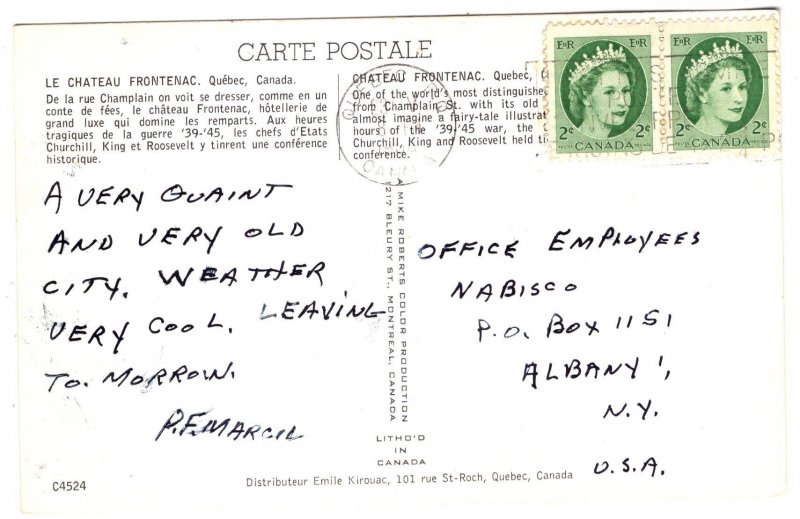 CARTE POSTALE
LE CHATEAU FRONTENAC. Québec, Canada.
De la rue Champlain on voit se dresser, comme en un
conte de fées, le château Frontenac, hôtellerie de
grand luxe qui domine les remparts. Aux heures
tragiques de la guerre '39-'45, les chefs d'Etats
Churchill, King et Roosevelt y tinrent une conférence
historique.
CHATEAU FRONTENAC. Quebec,
One of the world's most distinguishe
from Champlain St. with its old
almost imagine a fairy-tale illustrat
hours of the '39-'45 war, the
Churchill, King and Roosevelt held t
conference.
EIIR
2¢ 2¢
POSTES CANADA POSTAGE
EIIR
2¢ 2¢
POSTES CANADA POSTAGE
A VERY QUAINT
AND VERY OLD
CITY. WEATHER
VERY COOL. LEAVING
TO. MORROW.
P.F. MARCIL
A MIKE ROBERTS COLOR PRODUCTION
1217 BLEURY ST., MONTREAL, CANADA
LITHO'D
IN
CANADA
OFFICE EMPLOYEES
NABISCO
P.O. BOX 1151
ALBANY 1,
N.Y.
U.S.A.
C4524
Distributeur Emile Kirouac, 101 rue St-Roch, Quebec, Canada